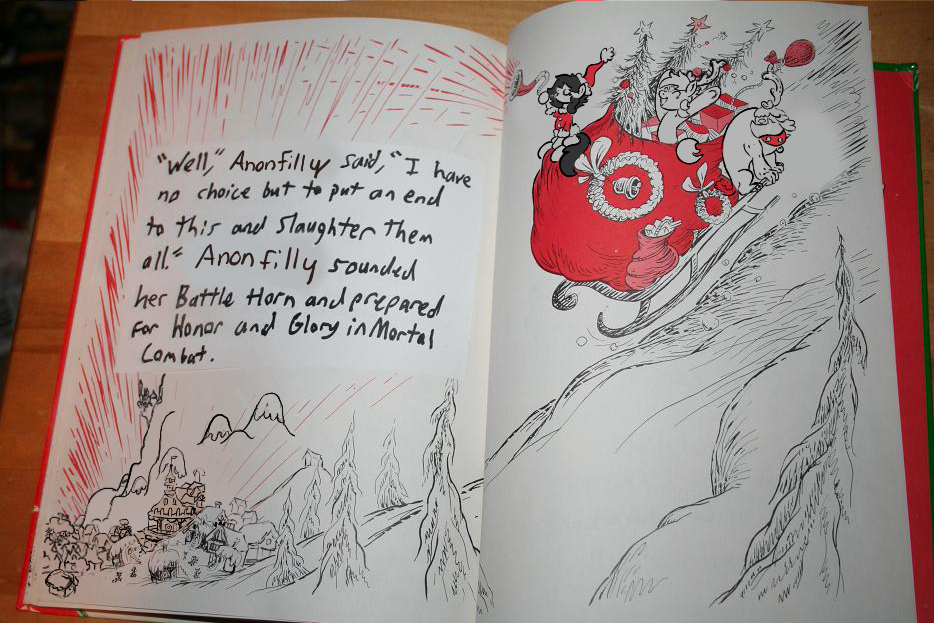 "Well," Anonfilly said, "I have
no choice but to put an end
to this and Slaughter Them
all." Anonfilly sounded
her Battle Horn and prepared
For Honor and Glory in Mortal
Combat.